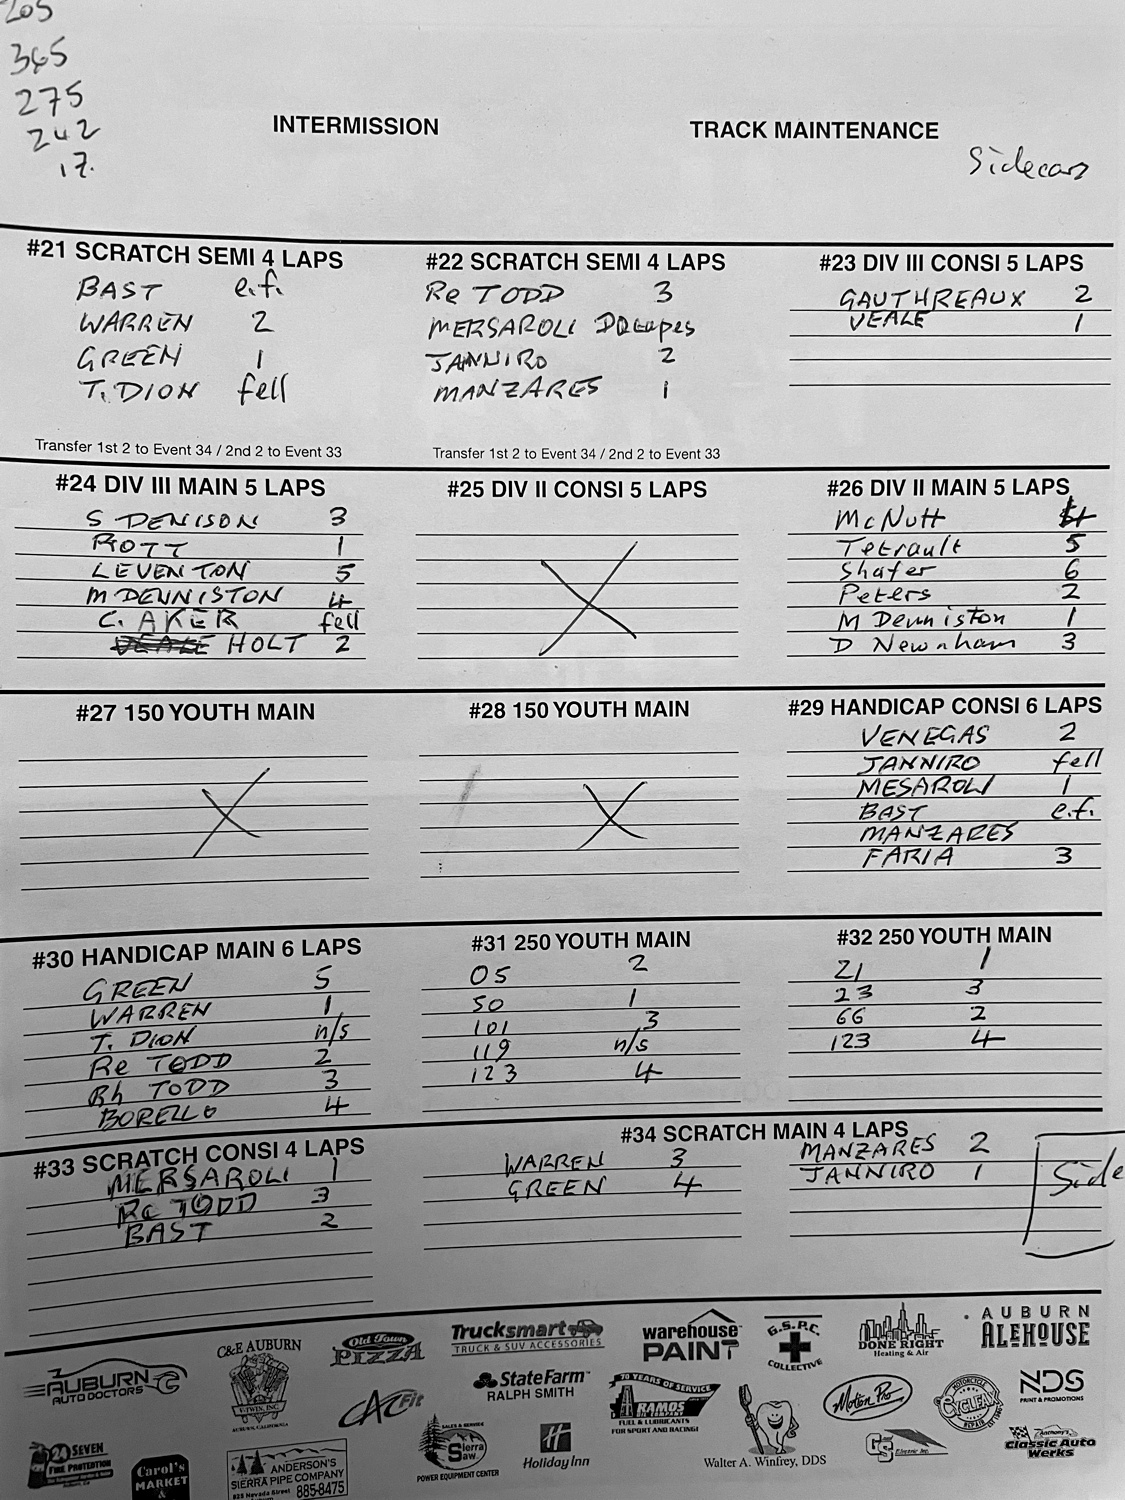 205
365
275
242
17.
INTERMISSION
TRACK MAINTENANCE
Sidecars
#21 SCRATCH SEMI 4 LAPS
BAST e.f.
WARREN 2
GREEN 1
T. DION fell
Transfer 1st 2 to Event 34 / 2nd 2 to Event 33
#22 SCRATCH SEMI 4 LAPS
Re TODD 3
MERSAROLI
JANNIRO 2
MANZARES 1
Transfer 1st 2 to Event 34 / 2nd 2 to Event 33
#23 DIV III CONSI 5 LAPS
GAUTHREAUX 2
VEALE 1
#24 DIV III MAIN 5 LAPS
S DENISON 3
ROTT 1
LEVENTON 5
M DENNISTON 4
C. AKER fell
HOLT 2
#25 DIV II CONSI 5 LAPS
#26 DIV II MAIN 5 LAPS
McNutt 4
Tetrault 5
Shafer 6
Peters 2
M Denniston 1
D Newnham 3
#27 150 YOUTH MAIN
#28 150 YOUTH MAIN
#29 HANDICAP CONSI 6 LAPS
VENEGAS 2
JANNIRO fell
MESAROLI 1
BAST e.f.
MANZARES
FARIA 3
#30 HANDICAP MAIN 6 LAPS
GREEN 5
WARREN 1
T. DION n/s
Re TODD 2
Rh TODD 3
BORELLO 4
#31 250 YOUTH MAIN
05 2
50 1
101 3
119 n/s
123 4
#32 250 YOUTH MAIN
21 1
23 3
66 2
123 4
#33 SCRATCH CONSI 4 LAPS
MERSAROLI 1
Re TODD 3
BAST 2
#34 SCRATCH MAIN 4 LAPS
WARREN 3
GREEN 4
MANZARES 2
JANNIRO 1
Side
AUBURN
AUTO DOCTORS
C&E AUBURN
V-TWIN, INC.
AUBURN, CALIFORNIA
Old Town
PIZZA
Trucksmart
TRUCK & SUV ACCESSORIES
warehouse
PAINT
G.S.P.C.
COLLECTIVE
DONE RIGHT
Heating & Air
AUBURN
ALEHOUSE
AC Fit
StateFarm™
RALPH SMITH
70 YEARS OF SERVICE
RAMOS
OIL COMPANY
FUEL & LUBRICANTS
FOR SPORT AND RACING!
Walter A. Winfrey, DDS
Motion Pro
MOTORCYCLE
REPAIR
NDS
PRINT & PROMOTIONS
24 SEVEN
FIRE PROTECTION
Carol's
MARKET
&
ANDERSON'S
SIERRA PIPE COMPANY
885-8475
SALES & SERVICE
Sierra
Saw
POWER EQUIPMENT CENTER
H
Holiday Inn
GS Electric Inc.
Anthony's
Classic Auto
Werks